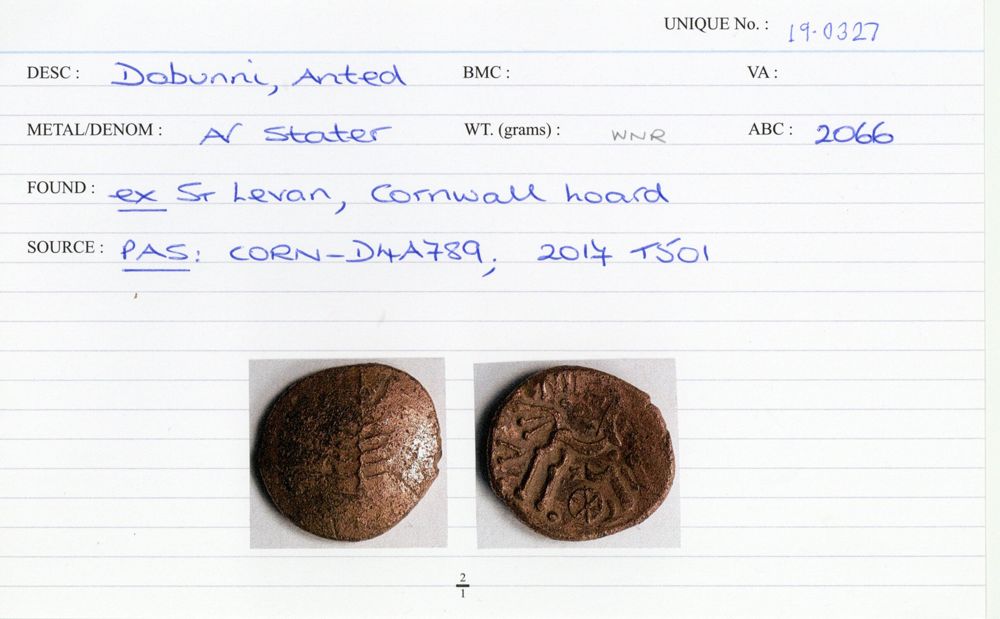 UNIQUE No. : 19.0327
DESC : Dobunni, Anted BMC : VA :
METAL/DENOM : AV Stater WT. (grams) : WNR ABC : 2066
FOUND : ex St Levan, Cornwall hoard
SOURCE : PAS: CORN-D4A789, 2017 T501
2
1